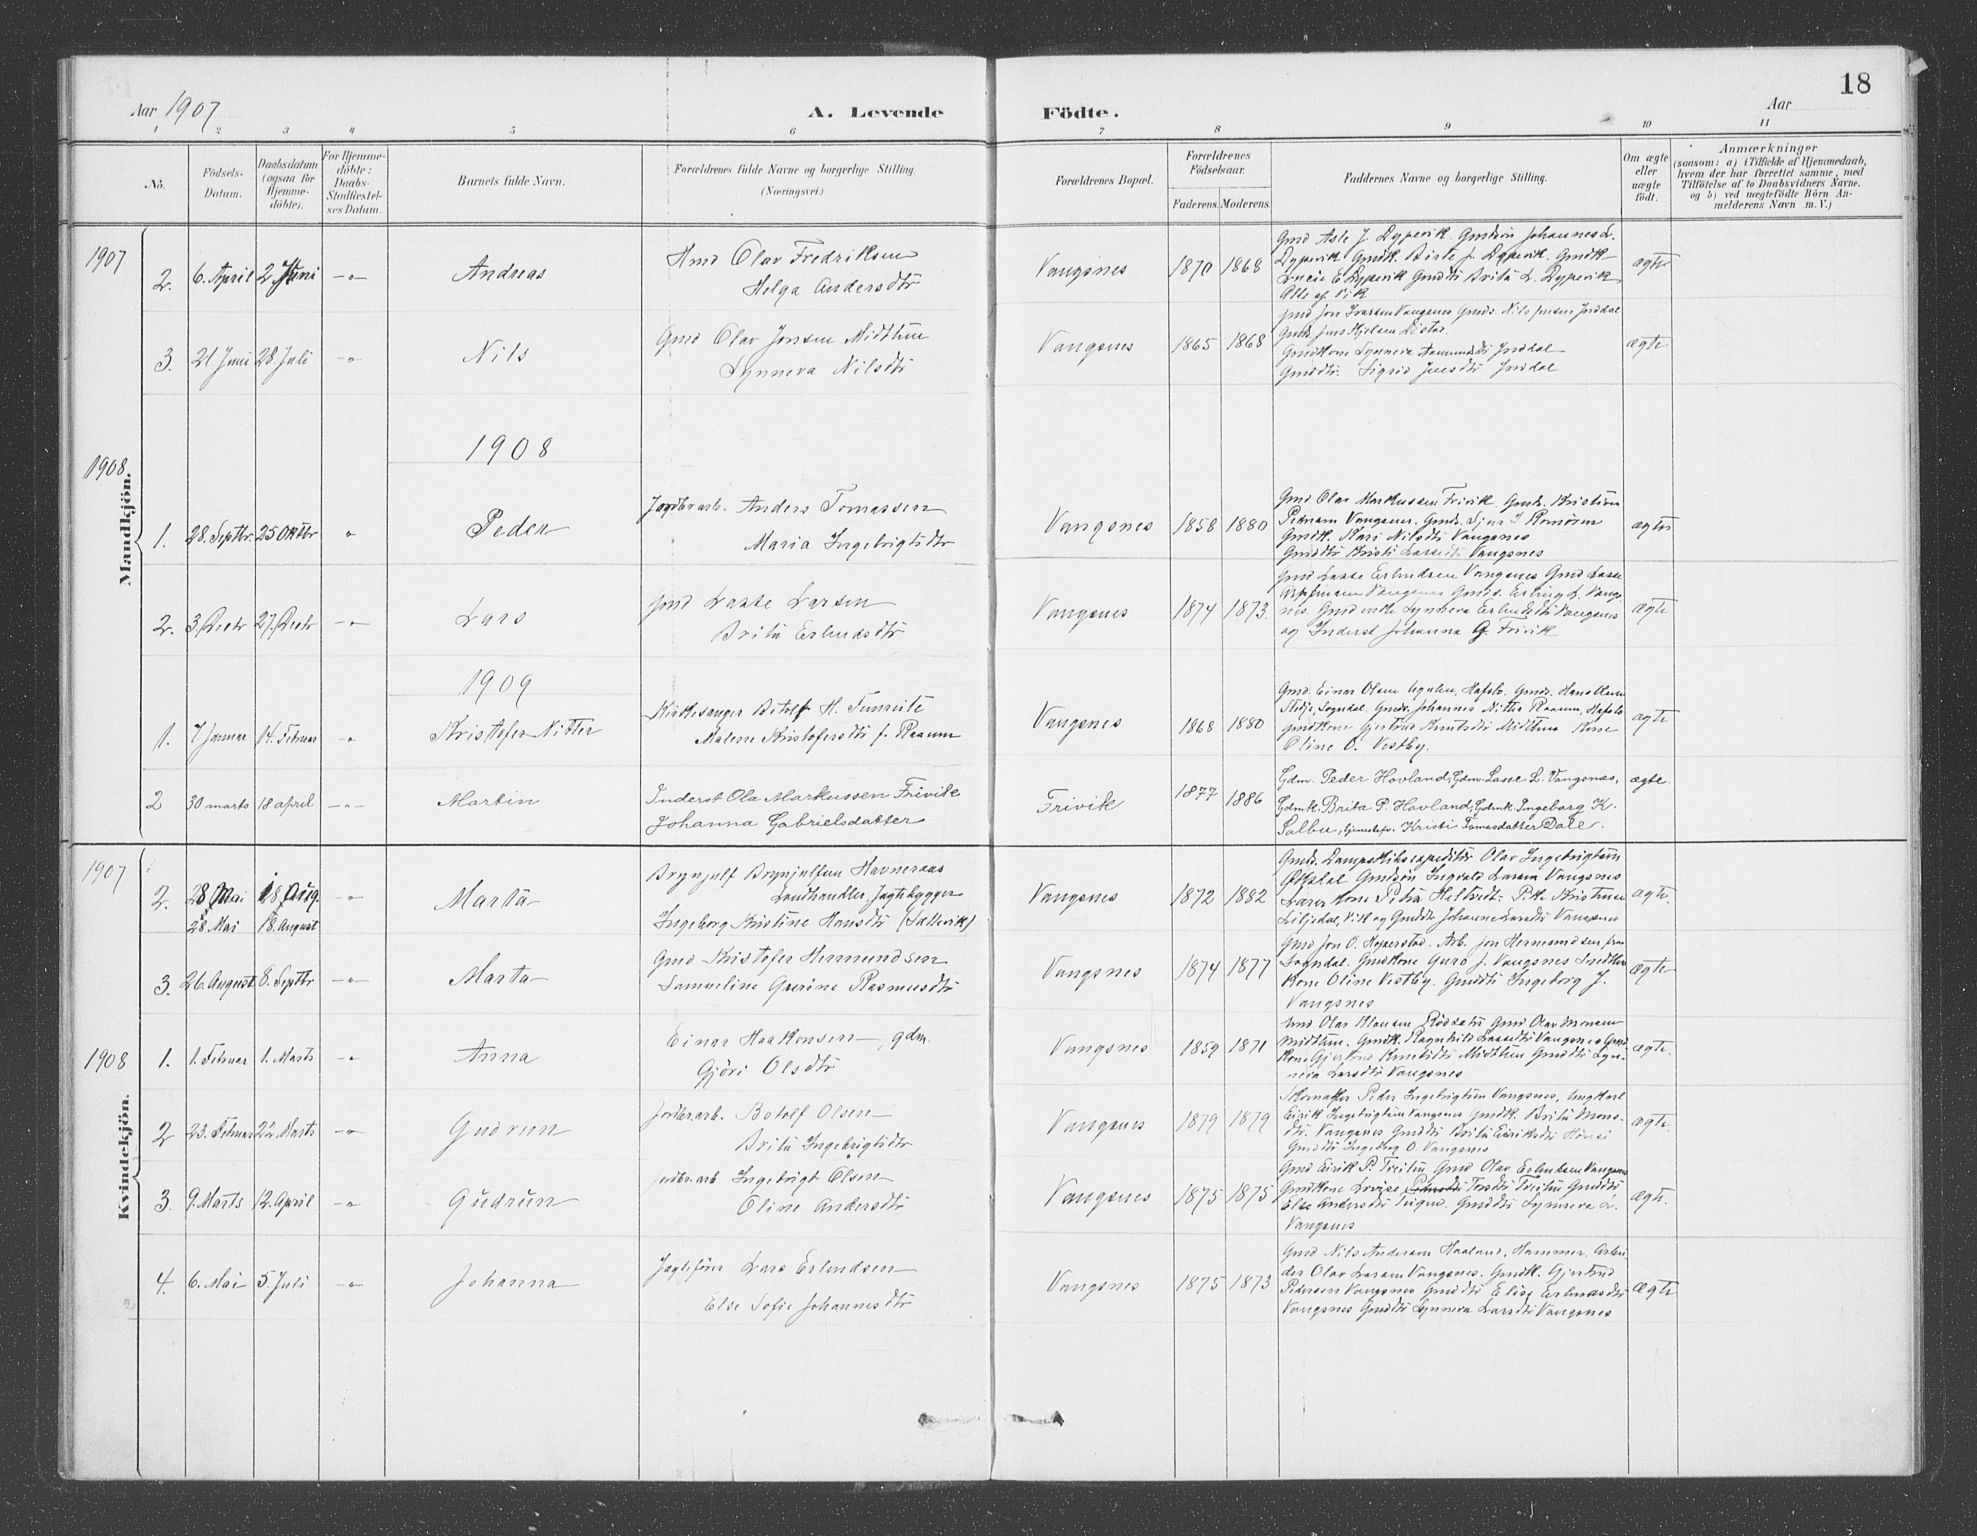 18
Aar 1907
A. Levende Födte.
Aar
1 2 3 4 5 6 7 8 9 10 11
No.
Födsels-Datum.
Daabsdatum (ogsaa for Hjemme-döbte).
For Hjemme-döbte: Daabs-Stadfæstel-ses Datum.
Barnets fulde Navn.
Forældrenes fulde Navne og borgerlige Stilling. (Næringsvei.)
Forældrenes Bopæl.
Forældrenes Födselsaar.
Faderens. Moderens.
Faddernes Navne og borgerlige Stilling.
Om ægte eller uægte födt.
Anmærkninger
(saasom: a) i Tilfælde af Hjemmedaab, hvem der har forrettet samme, med Tilföielse af to Daabsvidners Navne. og b) ved uegtefödte Börn An-melderens Navn m. V.)
Mandkjön.
1907
2. 6. April 2 Juni -"- Andreas
Olav Fredriksen
Helga Andersdtr
Vangsnes 1870 1868
Gmd Asle J. Dyperik. Gmdsön Johannes L.
Dyperik Gmdk. J. Dyperik. Gmdk
E Dyperik Gmddtr Brita L. Dyperik
Alle af Vik
ægte
3. 21 Juni 28 Juli -"- Nils
Gmd Olav Jonsen Midthun
Synneva Nilsdtr
Vangsnes 1865 1868
Gmd Jon Ivarsen Vangsnes Gmds. Nils Jordal
Gmdkone Synneva Aamundsdtr Jordal
Gmddtr. Sigrid Jensdtr Jordal
ægte
1908
1908.
1. 28. Septbr. 25 Oktbr " Peder
Jordbrarb. Anders Tomassen
Maria Ingebrigtsdtr
Vangsnes 1858 1880
Gmd Olav Markussen Frivik Gmds. Kristian
Vangsnes. Gmds.
Gmdk. Kari Nilsdtr Vangsnes
Gmddtr Kristi Lassedtr Vangsnes
ægte
2. 3. Decbr 27. Decbr -"- Lars
Gmd Lasse Larsen
Brita Erlendsdtr
Vangsnes 1874 1873.
Gmd Lasse Erlendsen Vangsnes Gmd Lasse
Vangsnes Gmds. Erling L. Vang-
nes. Gmd enke Synneva Erlendsdtr Vangsnes
og Inderst Johanna G. Frivik
ægte
1909
1. 7 Januar 14. Februar " Kristofer Nitter
Kirkesanger Botolf H. Tumreite
Malene Kristofersdtr f. Raaum
Vangsnes 1868 1880
Gmd. Einar Olsen Hafslo. Gmds. Hans Olsen
Stedje, Sogndal. Gmds. Johannes Nitter Raaum, Hafslo
gmdkone Gjertrud Knutsdtr Midthun Kone
Oline O. Vestby.
ægte
2 30 marts 18 april -"- Martin
Inderst Ola Markussen Frivik
Johanna Gabrielsdatter
Frivik 1877 1886
Gdm. Peder Hovland, Gdm. Lasse L. Vangsnes,
Gdmk. Brita P. Hovland, Gdmk. Ingeborg K.
Salbu, Kristi Tomasdatter Dale.
ægte
Kvindekjön.
1907
2. 28 Mai 18 Aug. -"- Marta
28 Mai 18. August
Brynjulf Brynjulfsen Havneraas
Landhandler Jagtbygger
Ingeborg Kristine Hansdtr (Sallerik)
Vangsnes 1872 1882
Gmds. Dampskibsexpeditör Olav Ingebrigtsen
Gmdsön Ingvald Larsen Vangsnes
Lærer kone Petra Heltvedt. Pike Kristense
Liljedal, Vik og Gmddtr Johanne Larsdtr Vangsnes
ægte.
3. 26. August 8. Septbr -"- Marta
Gmd Kristofer Hermundsen
Samueline Gurine Rasmusdtr
Vangsnes 1874 1877
Gmd Jon O. Hoperstad. Arb. Jon Hermundsen fra
Sogndal. Gmdkone Guro J. Vangsnes
kone Oline Vestby. Gmddtr Ingeborg J.
Vangsnes
ægte
1908
1. 1. Februar 1. Marts -"- Anna
Einar Haakonsen, gdm.
Gjöri Olsdtr
Vangsnes 1859 1871
Gmd Olav Hansen Gmd Olav Monsen
Midthun. Gmdk. Ragnhild Lassedtr Vangsnes Gmd
kone Gjertrud Knutsdtr Midthun Gmddtr Syn-
neva Larsdtr Vangsnes
ægte.
2 23. Februar 22. Marts -"- Gudrun
Jordbrarb. Botolf Olsen
Brita Ingebrigtsdtr
Vangsnes 1879 1879
Skomaker Peder Ingebrigtsen Vangsnes, Ungkarl
Eirik Ingebrigtsen Vangsnes Gmdk. Brita Mons-
dtr. Vangsnes Gmddtr Brita Eiriksdtr
Gmddtr Ingeborg O. Vangsnes
ægte.
3. 9. Marts 12. April -"- Gudrun
Jordbrarb Ingebrigt Olsen
Oline Andersdtr
Vangsnes 1875 1875
Gmd Eirik P. Gmd Olav Erlendsen Vangsnes
Gmdkone Lovise Gmddtr
Else Andersdtr Gmddtr Synneva L.
Vangsnes
ægte.
4. 6. Mai 5. Juli -"- Johanna
Jagtefører Lars Erlendsen
Else Sofie Johannesdtr
Vangsnes 1875 1873
Gmd Nils Andersen Haaland, Hammer. Arbei
der Olav Larsen Vangsnes. Gmdk. Gjertrud
Pedersen Vangsnes Gmddtr Elise Erlendsdtr
Vangsnes Gmddtr Synneva Larsdtr Vangsnes
Ægte